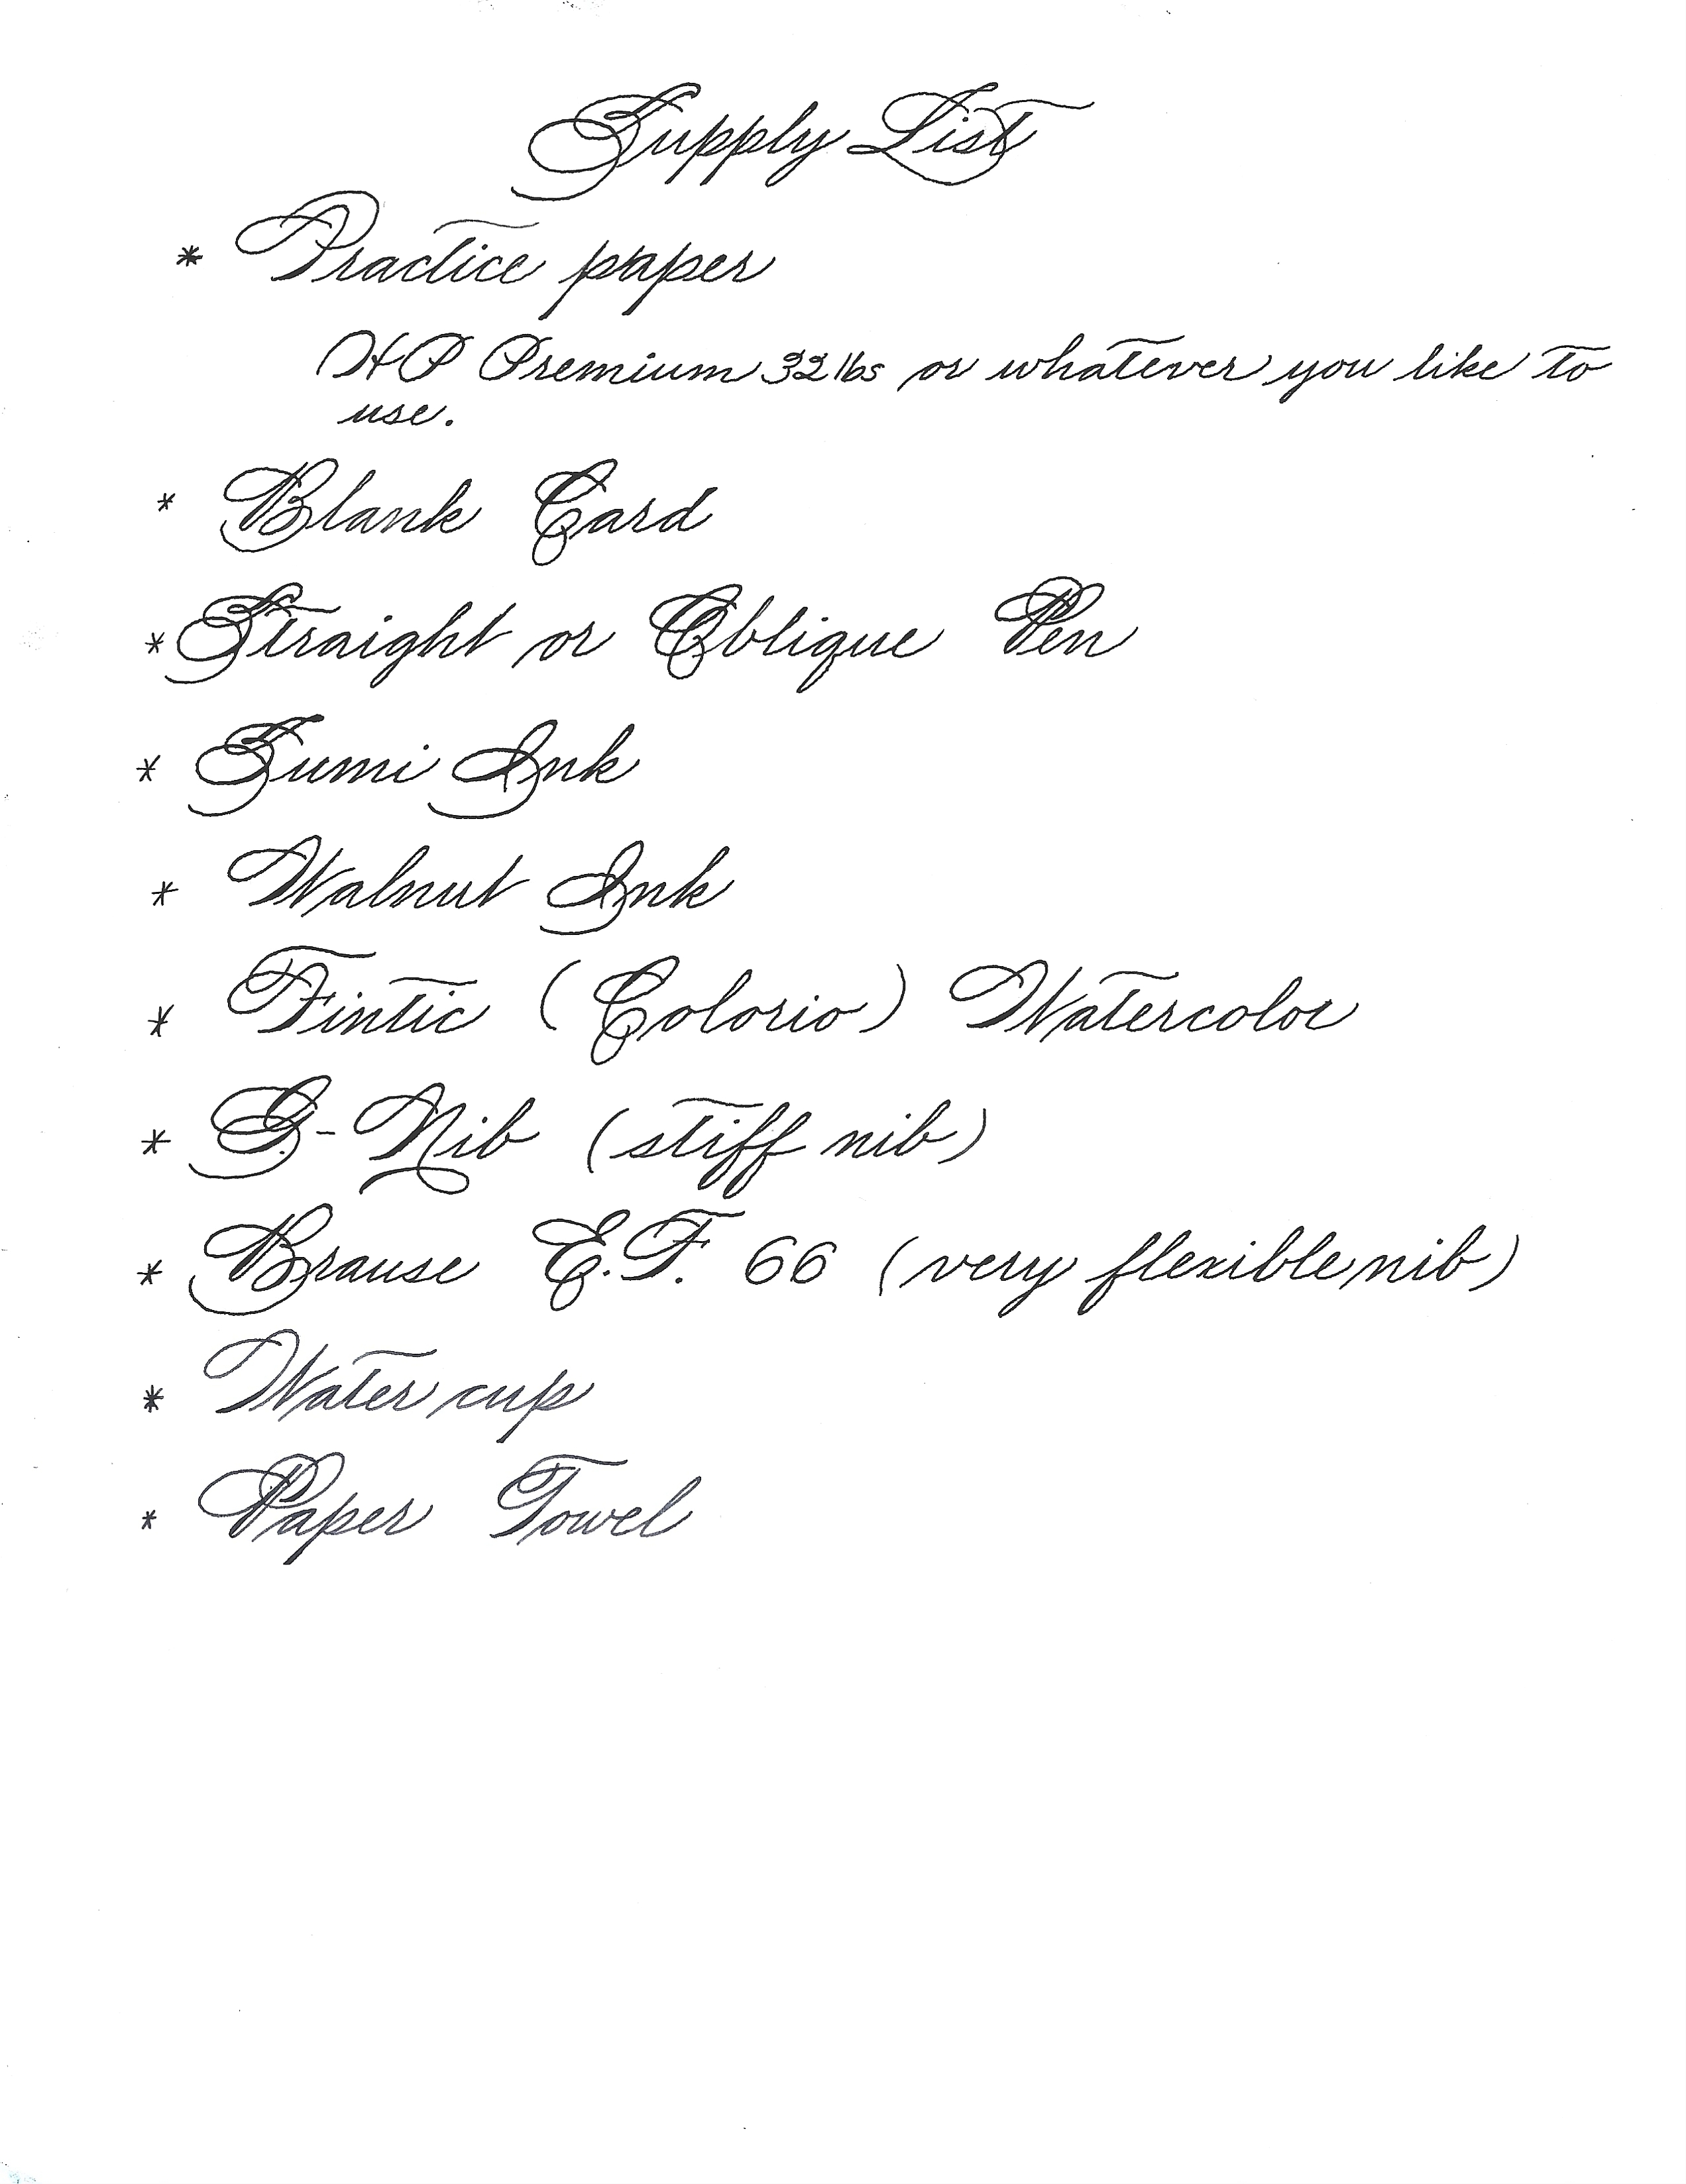 Supply List
* Practice paper
HP Premium 32 lbs or whatever you like to
use.
* Blank Card
* Straight or Oblique Pen
* Sumi Ink
* Walnut Ink
* Fintic (Colorio) Watercolor
* G-Nib (stiff nib)
* Brause E.F. 66 (very flexible nib)
* Water cup
* Paper Towel